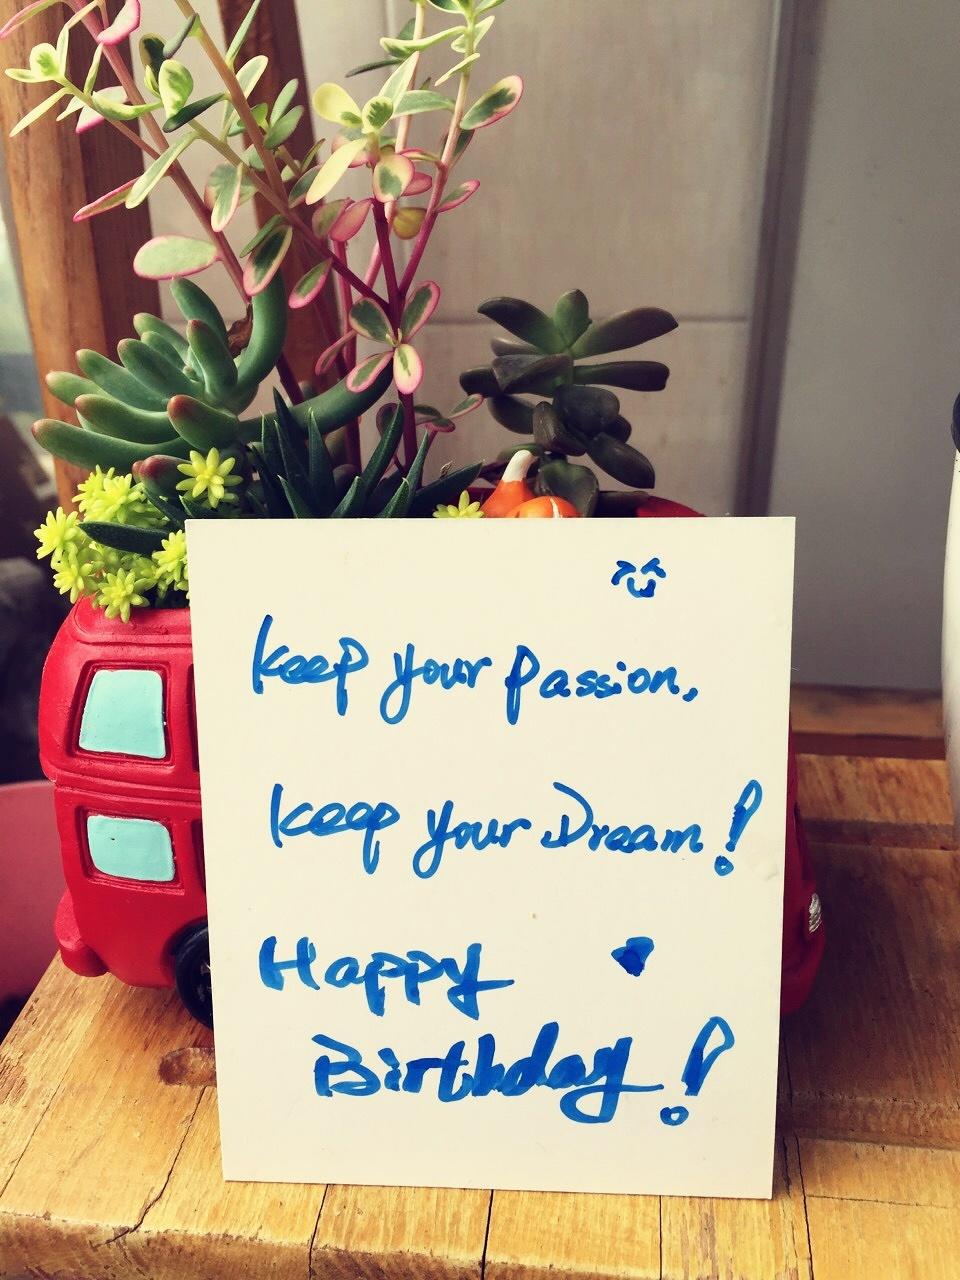 keep your passion,
keep your Dream!
Happy
Birthday!